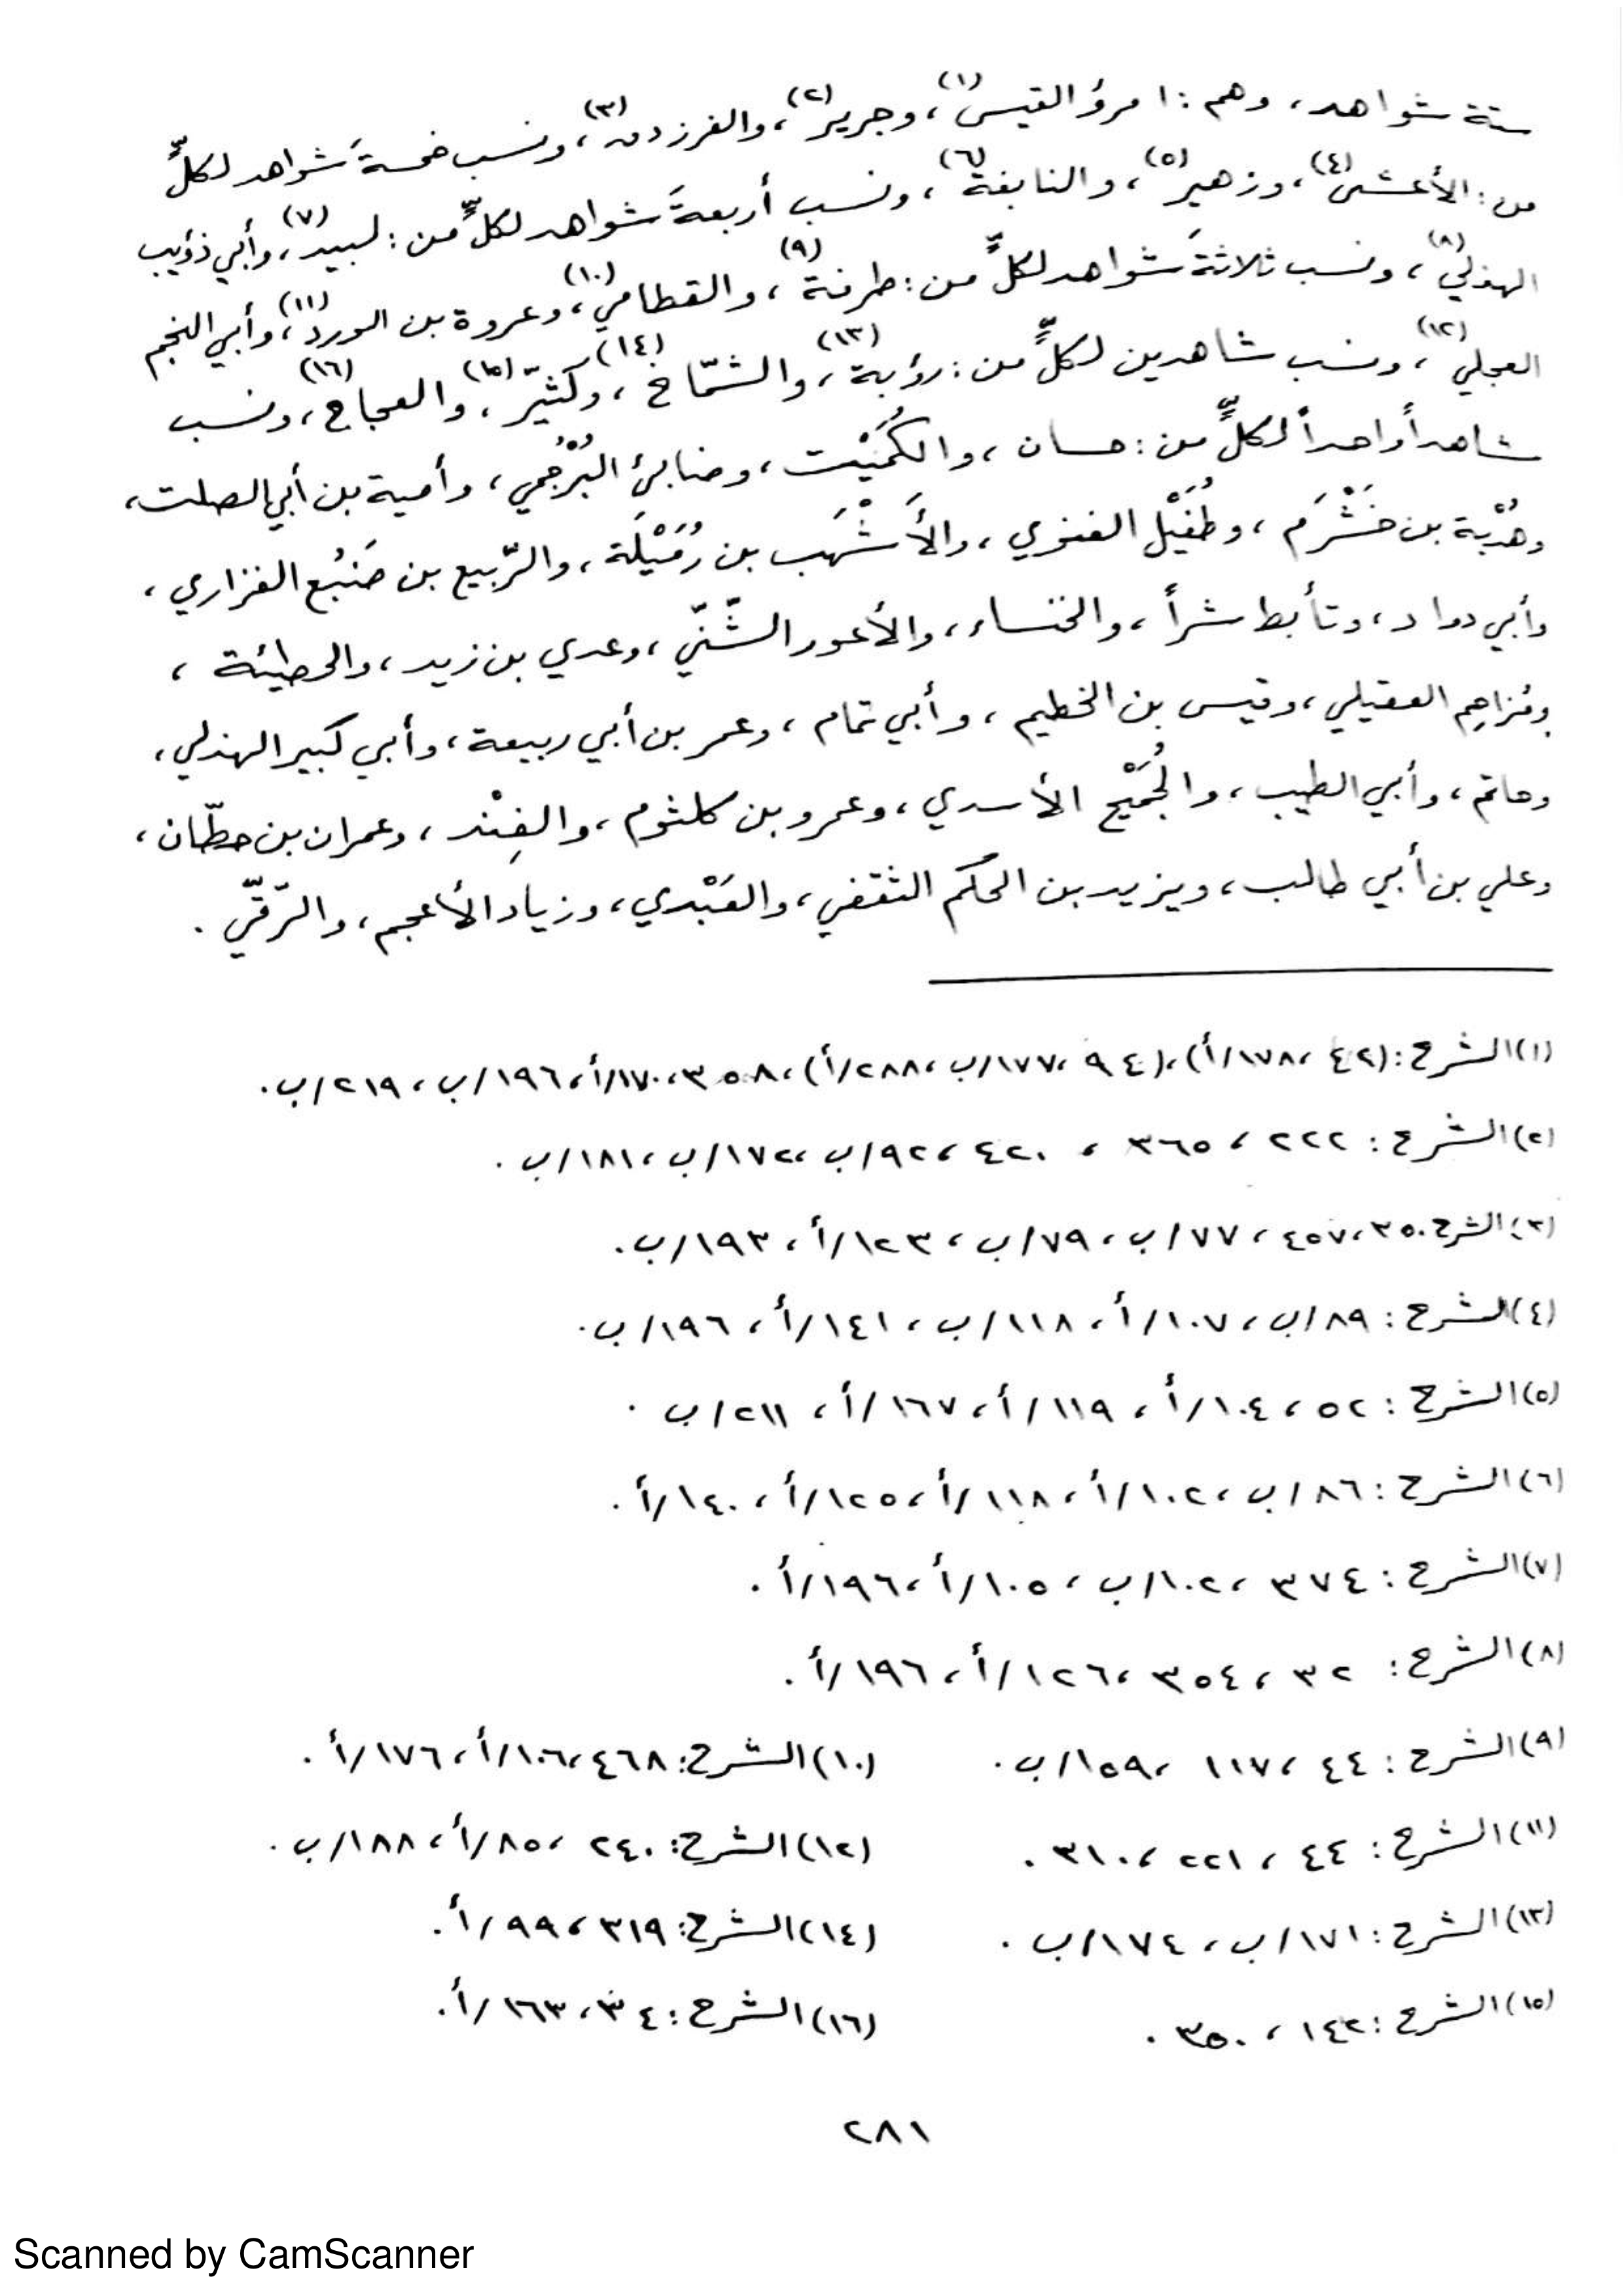 ستة شواهد، وهم: امرؤ القيس(١)، وجرير(٢)، والفرزدق(٣)، ونسب خمسةَ شواهد لكلٍّ
من: الأعشى(٤)، وزهير(٥)، والنابغة(٦)، ونسب أربعةَ شواهد لكلٍّ من: لبيد(٧)، وأبي ذؤيب
الهذلي(٨)، ونسب ثلاثةَ شواهد لكلٍّ من: طرفة(٩)، والقطامي(١٠)، وعروة بن الورد(١١)، وأبي النجم
العجلي(١٢)، ونسب شاهدين لكلٍّ من: رؤبة(١٣)، والشمّاخ(١٤)، وكُثيّر(١٥)، والعجاج(١٦)، ونسب
شاهداً واحداً لكلٍّ من: حسان، والكُمَيْت، وضابئ البُرْجُمي، وأمية بن أبي الصلت،
وهُدْبة بن خَشْرَم، وطُفَيْل الغنوي، والأَشْهَب بن رُمَيْلَة، والرّبيع بن ضَبُع الفزاري،
وأبي دواد، وتأبط شراً، والخنساء، والأعور الشَّنّي، وعدي بن زيد، والحطيئة،
ومُزاحِم العقيلي، وقيس بن الخطيم، وأبي تمام، وعمر بن أبي ربيعة، وأبي كبير الهذلي،
وحاتم، وأبي الطيب، والجُمَيْح الأسدي، وعمرو بن كلثوم، والفِنْد، وعمران بن حطّان،
وعلي بن أبي طالب، ويزيد بن الحكم الثقفي، والعَبْدي، وزياد الأعجم، والرّقّي.
(١) الشرح: (٤٢، ١٧٨/أ)، (٩٤، ١٧٧/ب، ٢٨٨/أ)، ٣٥٨، ١٧٠/أ، ١٩٦/ب، ٢١٩/ب.
(٢) الشرح: ٢٢٢، ٣٦٥، ٤٢٠، ٩٢/ب، ١٧٢/ب، ١٨١/ب.
(٣) الشرح ٣٥٠، ٤٥٧، ٧٧/ب، ٧٩/ب، ١٢٣/أ، ١٩٣/ب.
(٤) الشرح: ٨٩/ب، ١٠٧/أ، ١١٨/ب، ١٤١/أ، ١٩٦/ب.
(٥) الشرح: ٥٢، ١٠٤/أ، ١١٩/أ، ١٦٧/أ، ٢١١/ب.
(٦) الشرح: ٨٦/ب، ١٠٢/أ، ١١٨/أ، ١٢٥/أ، ١٤٠/أ.
(٧) الشرح: ٣٧٤، ١٠٢/ب، ١٠٥/أ، ١٩٦/أ.
(٨) الشرح: ٣٢، ٣٥٤، ١٢٦/أ، ١٩٦/أ.
(٩) الشرح: ٤٤، ١١٧، ١٥٩/ب. (١٠) الشرح: ٤٦٨، ١٠٦/أ، ١٧٦/أ.
(١١) الشرح: ٤٤، ٢٢١، ٣١٠. (١٢) الشرح: ٢٤٠، ٨٥/أ، ١٨٨/ب.
(١٣) الشرح: ١٧١/ب، ١٧٤/ب. (١٤) الشرح: ٣١٩، ٩٩/أ.
(١٥) الشرح: ١٤٢، ٣٥٠. (١٦) الشرح: ٣٤، ١٦٣/أ.
٢٨١
Scanned by CamScanner